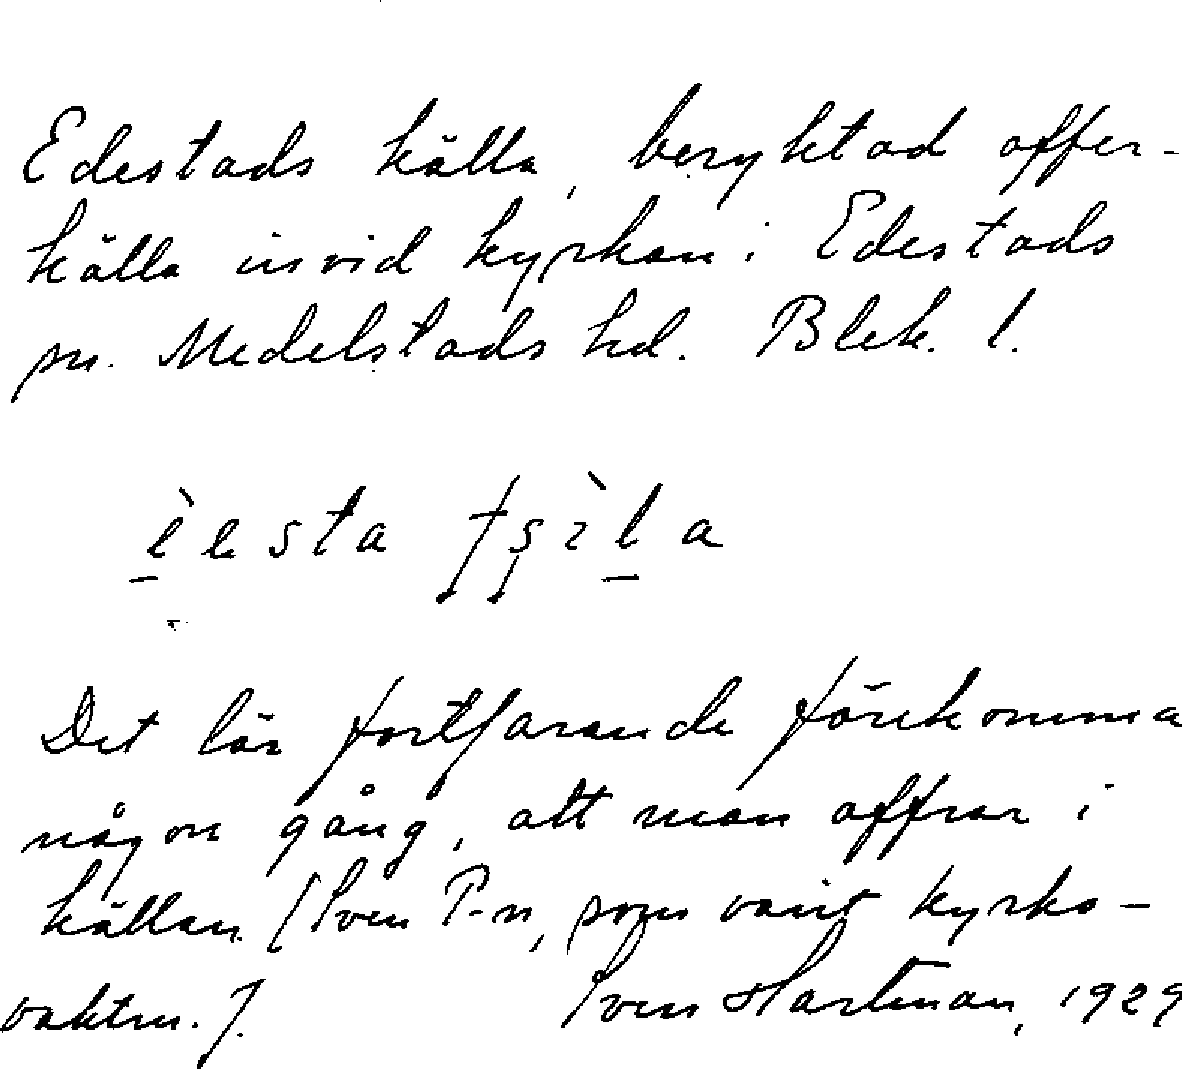 Edestads källa, beryktad offer-
källa invid kyrkan i Edestads
sn. Medelstads hd. Blek. l.
Det lär fortfarande förekomma
någon gång, att man offrar i
källan [Sven P-n, som varit kyrko-
vaktm.].
Sven Hartman, 1929